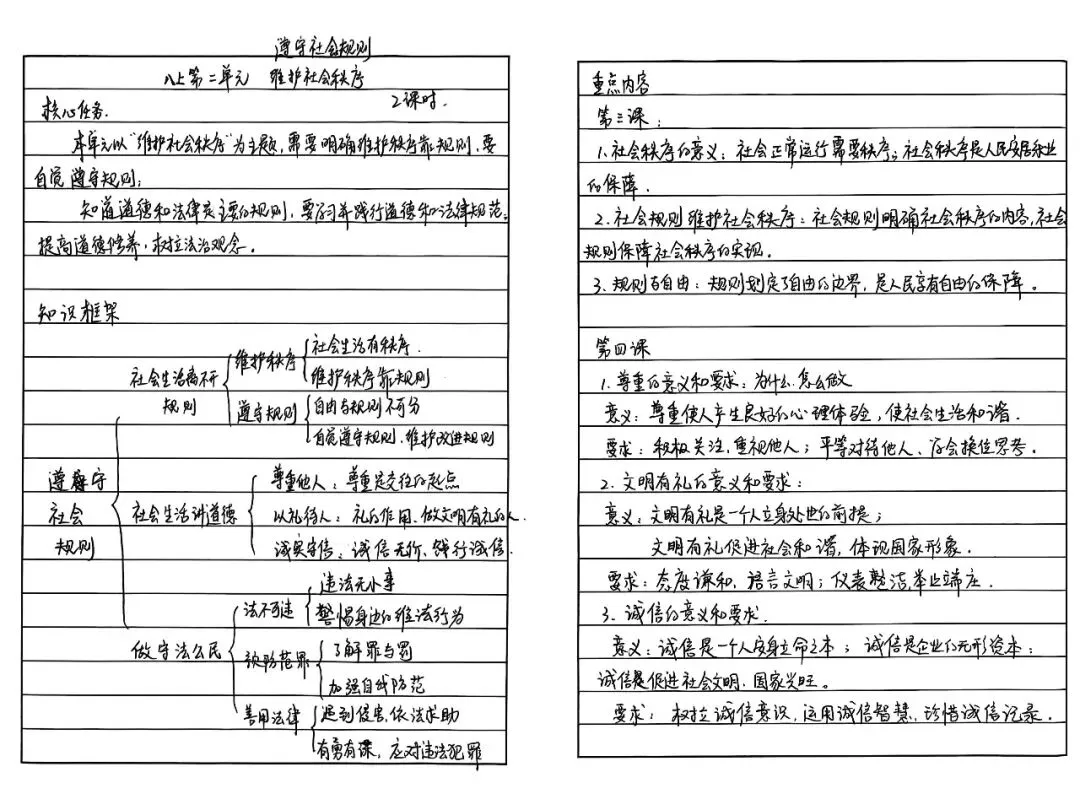 遵守社会规则
八上第二单元 维护社会秩序
核心任务. 2课时.
本单元以"维护社会秩序"为主题,需要明确维护秩序靠规则,要
自觉遵守规则;
知道道德和法律是主要的规则,要学习并践行道德和法律规范,
提高道德修养,树立法治观念。
知识框架
社会生活离不开
规则
维护秩序
社会生活有秩序.
维护秩序靠规则
遵守规则
自由与规则不可分
自觉遵守规则、维护改进规则
遵守
社会
规则
社会生活讲道德
尊重他人:尊重是交往的起点
以礼待人:礼的作用、做文明有礼的人.
诚实守信:诚信无价、践行诚信.
做守法公民
法不可违
违法无小事
警惕身边的违法行为
预防范罪
了解罪与罚
加强自我防范
善用法律
遇到侵害,依法求助
有勇有谋,应对违法犯罪
重点内容
第三课:
1.社会秩序的意义:社会正常运行需要秩序;社会秩序是人民安居乐业
的保障.
2.社会规则维护社会秩序:社会规则明确社会秩序的内容,社会
规则保障社会秩序的实现.
3.规则与自由:规则划定了自由的边界,是人民享有自由的保障。
第四课
1.尊重的意义和要求:为什么、怎么做
意义:尊重使人产生良好的心理体验,使社会生活和谐.
要求:积极关注、重视他人;平等对待他人、学会换位思考.
2.文明有礼的意义和要求:
意义:文明有礼是一个人立身处世的前提;
文明有礼促进社会和谐,体现国家形象.
要求:态度谦和、语言文明;仪表整洁,举止端庄.
3.诚信的意义和要求.
意义:诚信是一个人安身立命之本;诚信是企业的无形资本;
诚信是促进社会文明、国家兴旺。
要求:树立诚信意识,运用诚信智慧,珍惜诚信记录.